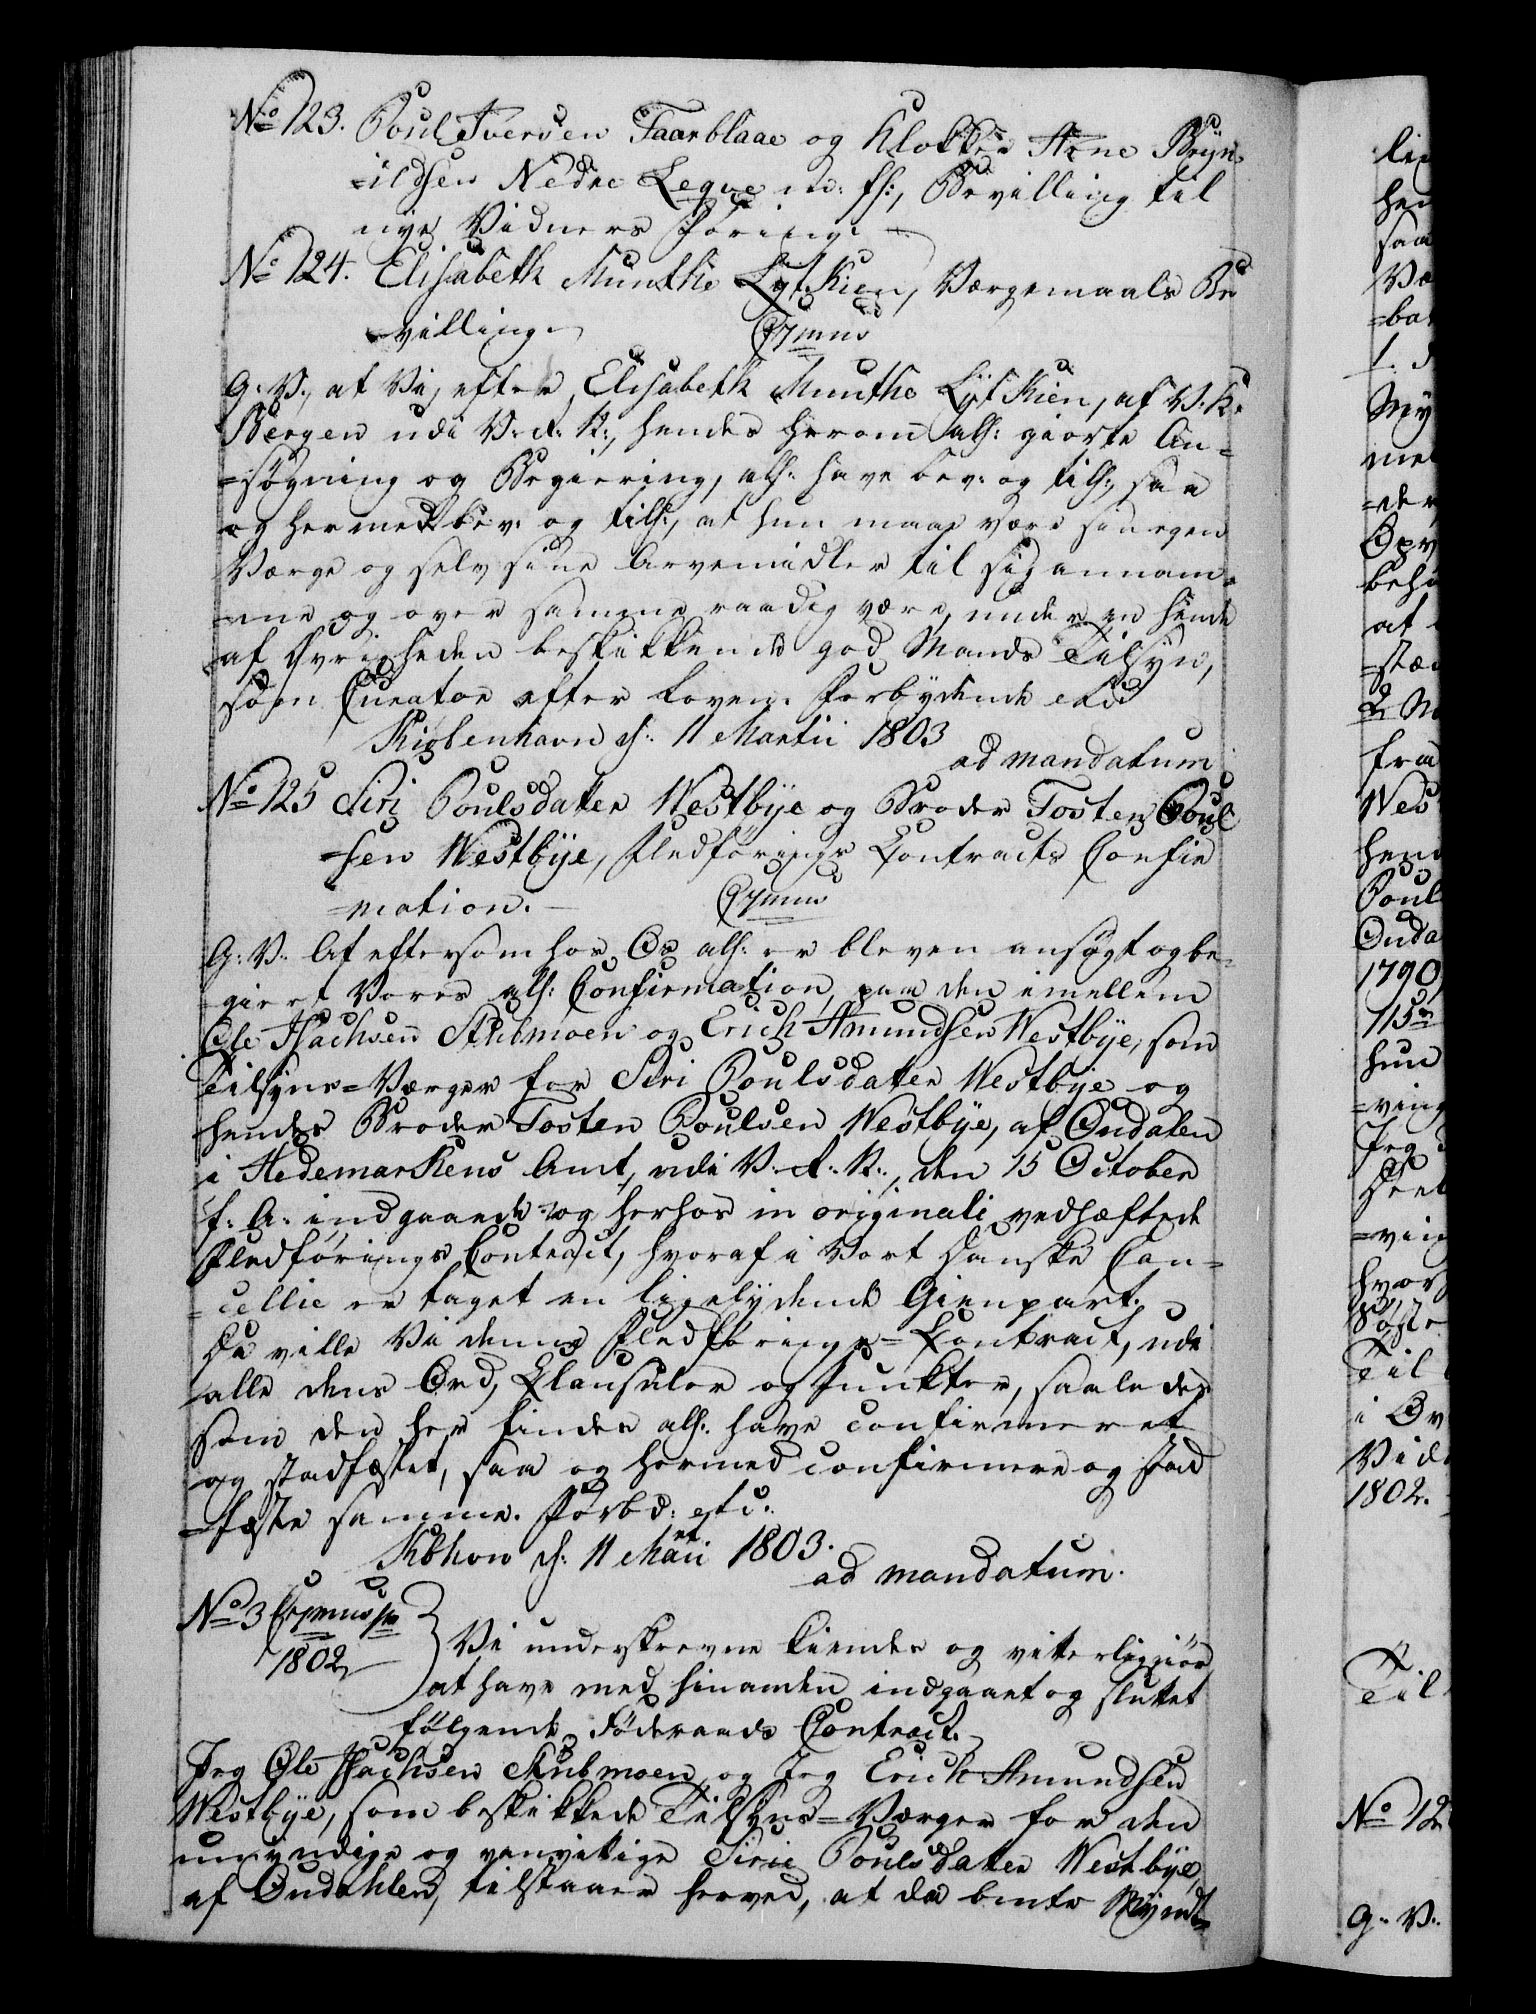 No 123. Poul Iversen Taarblaae og Klokker Arne Bryn-
-ildsen Nedre Leqve m: fl:, Bevilling til
nye Vidners Föring.
No 124. Elisabeth Munthe Lytkien, Værgemaals Be
-villing.
G: V:, at Vi, efter Elisabeth Munthe Lytkien, af V. K:
Bergen udi V: R: N:, hendes herom all: giorte An=
=søgning og Begiering, all: have bev: og till:, saa
og hermed bev: og till:, at hun maae være sin egen
Værge og selv sine Arvemidler til sig annam=
-me og over samme raadig være, under en hende
af Øvrigheden beskikkende god Mands Tilsyn,
som Curator efter Loven. Forbydende etc:
Kiøbenhavn d: 11 Martii 1803
ad mandatum
No 125 Siri Poulsdatter Westbye og Broder Tosten Poul
=sen Westbye, Fledförings Contracts Confir
=mation.
G: V: At eftersom hos Os all: er bleven ansøgt og be=
giert Vores all: Confirmation, paa den imellem
Ole Isachsen Stubmoen og Erich Amundsen Westbye, som
Tilsyns=Værger for Siri Poulsdatter Westbye og
hendes Broder Tosten Poulsen Westbye, af Oudalen
i Hedemarkens Amt, udi V: R: N:, den 15 October
f: A: indgaaede og herhos in originali vedhæftede
Fledförings Contract, hvoraf i Vort Danske Can=
=cellie er taget en ligelydende Gienpart.
Da ville Vi denne Fledförings=Contract, udi
alle dens Ord, Clausuler og Puncter, saaledes
som den her findes all: have confirmeret
og stadfæstet, saa og hermed confirmere og stad
=fæste samme. Forbd: etc:
Kbhvn d: 11 Martii 1803.
ad mandatum.
No 3
1802
Vi underskrevne kiender og vitterliggiör
at have med hinanden indgaaet og sluttet
følgende Föderaads Contract.
Jeg Ole Isachsen Stubmoen og Jeg Erich Amundsen
Westbye, som beskikkede Tilsyns=Værger for den
umyndige og vanvittige Sirie Poulsdatter Westbye,
af Oudahlen, tilstaaer herved, at da bemte Mynd=